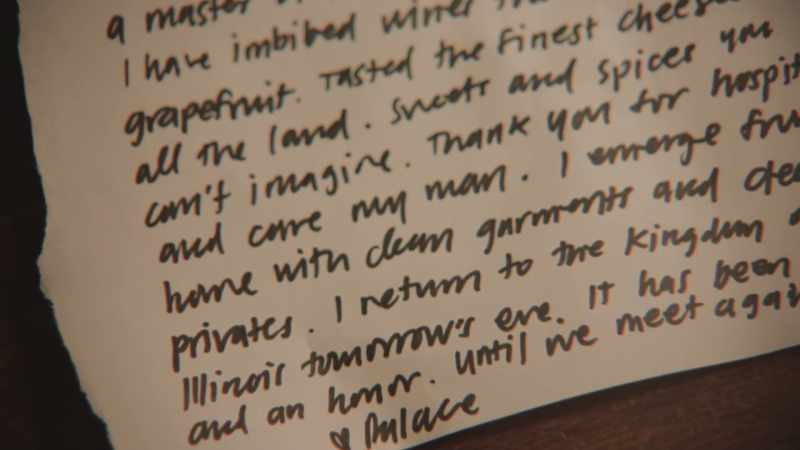 a master
I have imbibed wines
grapefruit. Tasted the Finest cheese
all the land. Sweets and spices you
can't imagine. Thank you for hospit
and care my man. I emerge
home with clean garments and clea
privates. I return to the kingdom
Illinois tomorrow's eve. It has been
and an honor. Until we meet agai
Palace